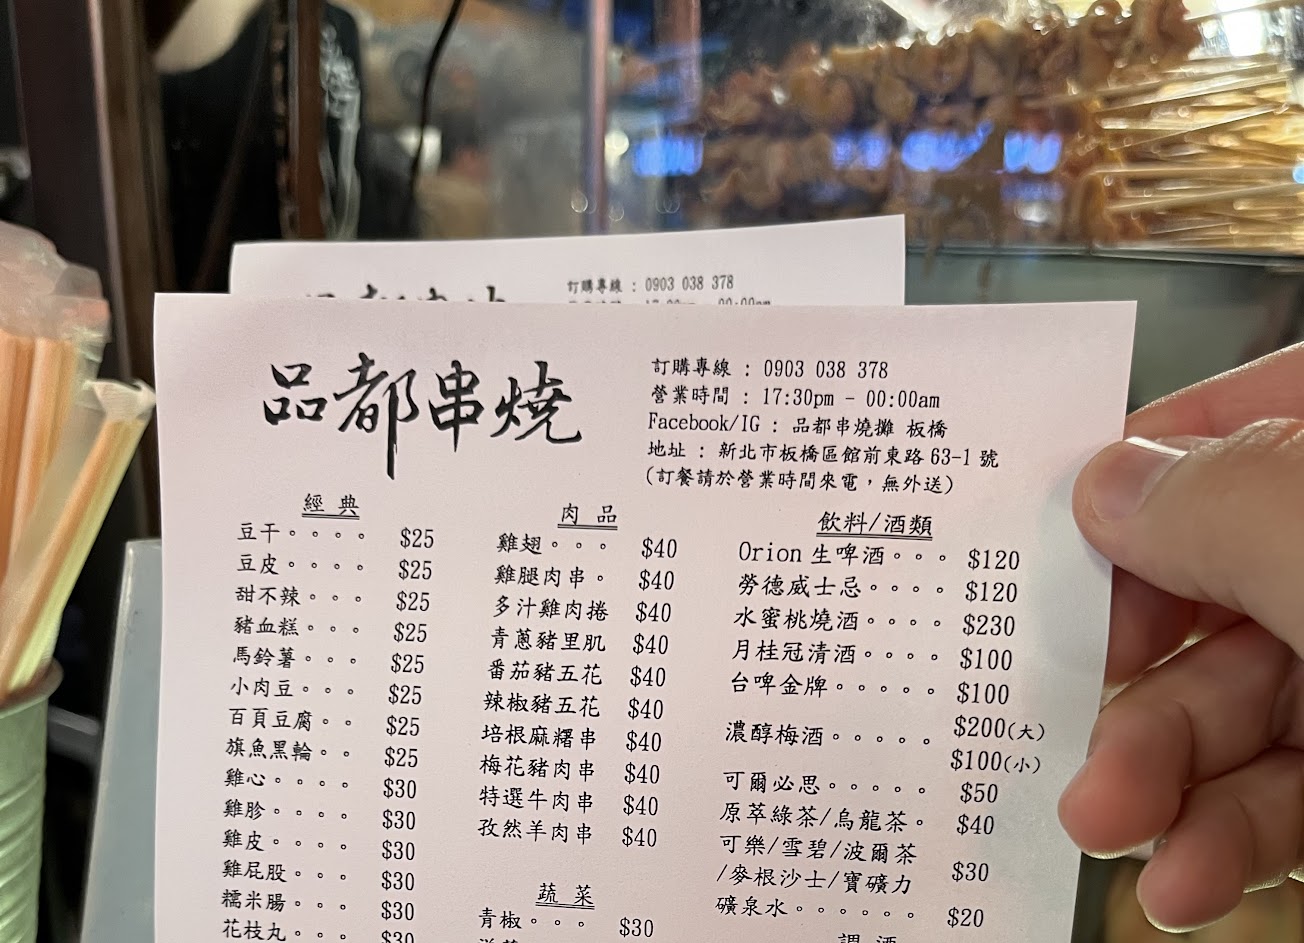 訂購專線 : 0903 038 378
品都串燒
訂購專線 : 0903 038 378
營業時間 : 17:30pm - 00:00am
Facebook/IG : 品都串燒攤 板橋
地址 : 新北市板橋區館前東路 63-1 號
(訂餐請於營業時間來電,無外送)
經典
豆干。。。。 $25
豆皮。。。。 $25
甜不辣。。。 $25
豬血糕。。。 $25
馬鈴薯。。。 $25
小肉豆。。。 $25
百頁豆腐。。 $25
旗魚黑輪。。 $25
雞心。。。。 $30
雞胗。。。。 $30
雞皮。。。。 $30
雞屁股。。。 $30
糯米腸。。。 $30
花枝丸。。。 $30
肉品
雞翅。。。 $40
雞腿肉串。 $40
多汁雞肉捲 $40
青蔥豬里肌 $40
番茄豬五花 $40
辣椒豬五花 $40
培根麻糬串 $40
梅花豬肉串 $40
特選牛肉串 $40
孜然羊肉串 $40
蔬菜
青椒。。。 $30
飲料/酒類
Orion 生啤酒。。。 $120
勞德威士忌。。。。 $120
水蜜桃燒酒。。。。 $230
月桂冠清酒。。。。 $100
台啤金牌。。。。。 $100
濃醇梅酒。。。。。 $200(大)
$100(小)
可爾必思。。。。。 $50
原萃綠茶/烏龍茶。 $40
可樂/雪碧/波爾茶
/麥根沙士/寶礦力 $30
礦泉水。。。。。。 $20
調酒